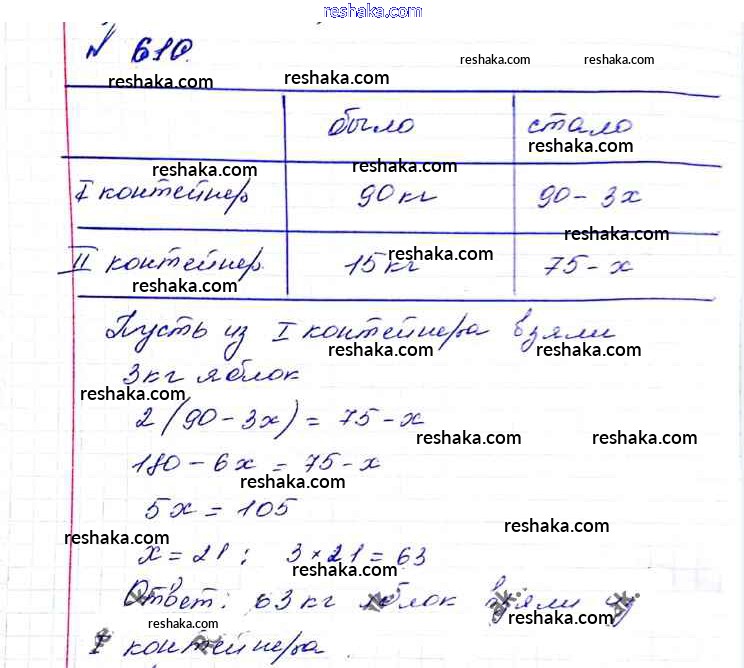 reshaka.com
№ 610.
reshaka.com reshaka.com reshaka.com reshaka.com
было стало
reshaka.com reshaka.com reshaka.com
I контейнер 90 кг 90 - 3x
reshaka.com reshaka.com reshaka.com
II контейнер. 15 кг 75 - x
Пусть из I контейнера взяли
reshaka.com reshaka.com
3 кг яблок
reshaka.com
2 (90 - 3x) = 75 - x
reshaka.com reshaka.com
180 - 6x = 75 - x
reshaka.com
5x = 105
reshaka.com reshaka.com
x = 21; 3 × 21 = 63
reshaka.com
Ответ: 63 кг яблок взяли из
reshaka.com reshaka.com
I контейнера